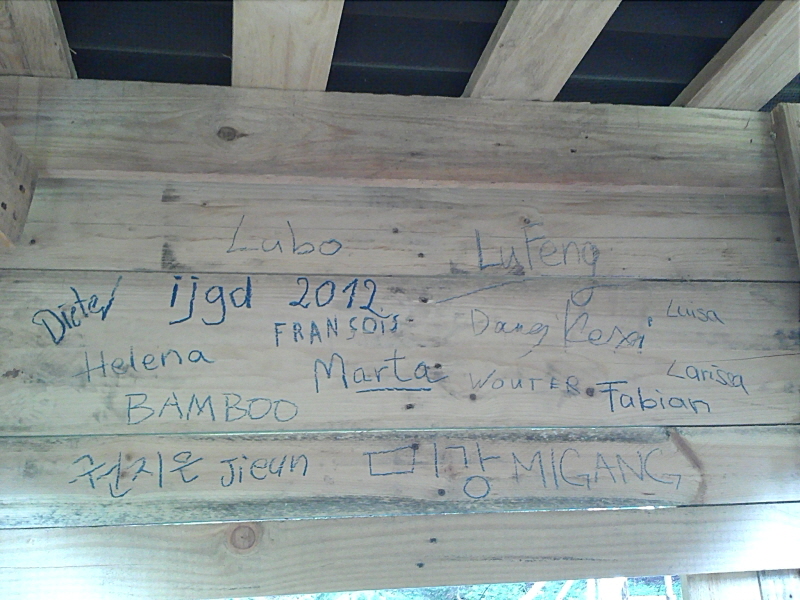 Lubo LuFeng
Dieter ijgd 2012 Luisa
FRANSOIS Dang Kexi
Helena Marta WOUTER Larissa
BAMBOO Fabian
권지은 Jieun 미강 MIGANG